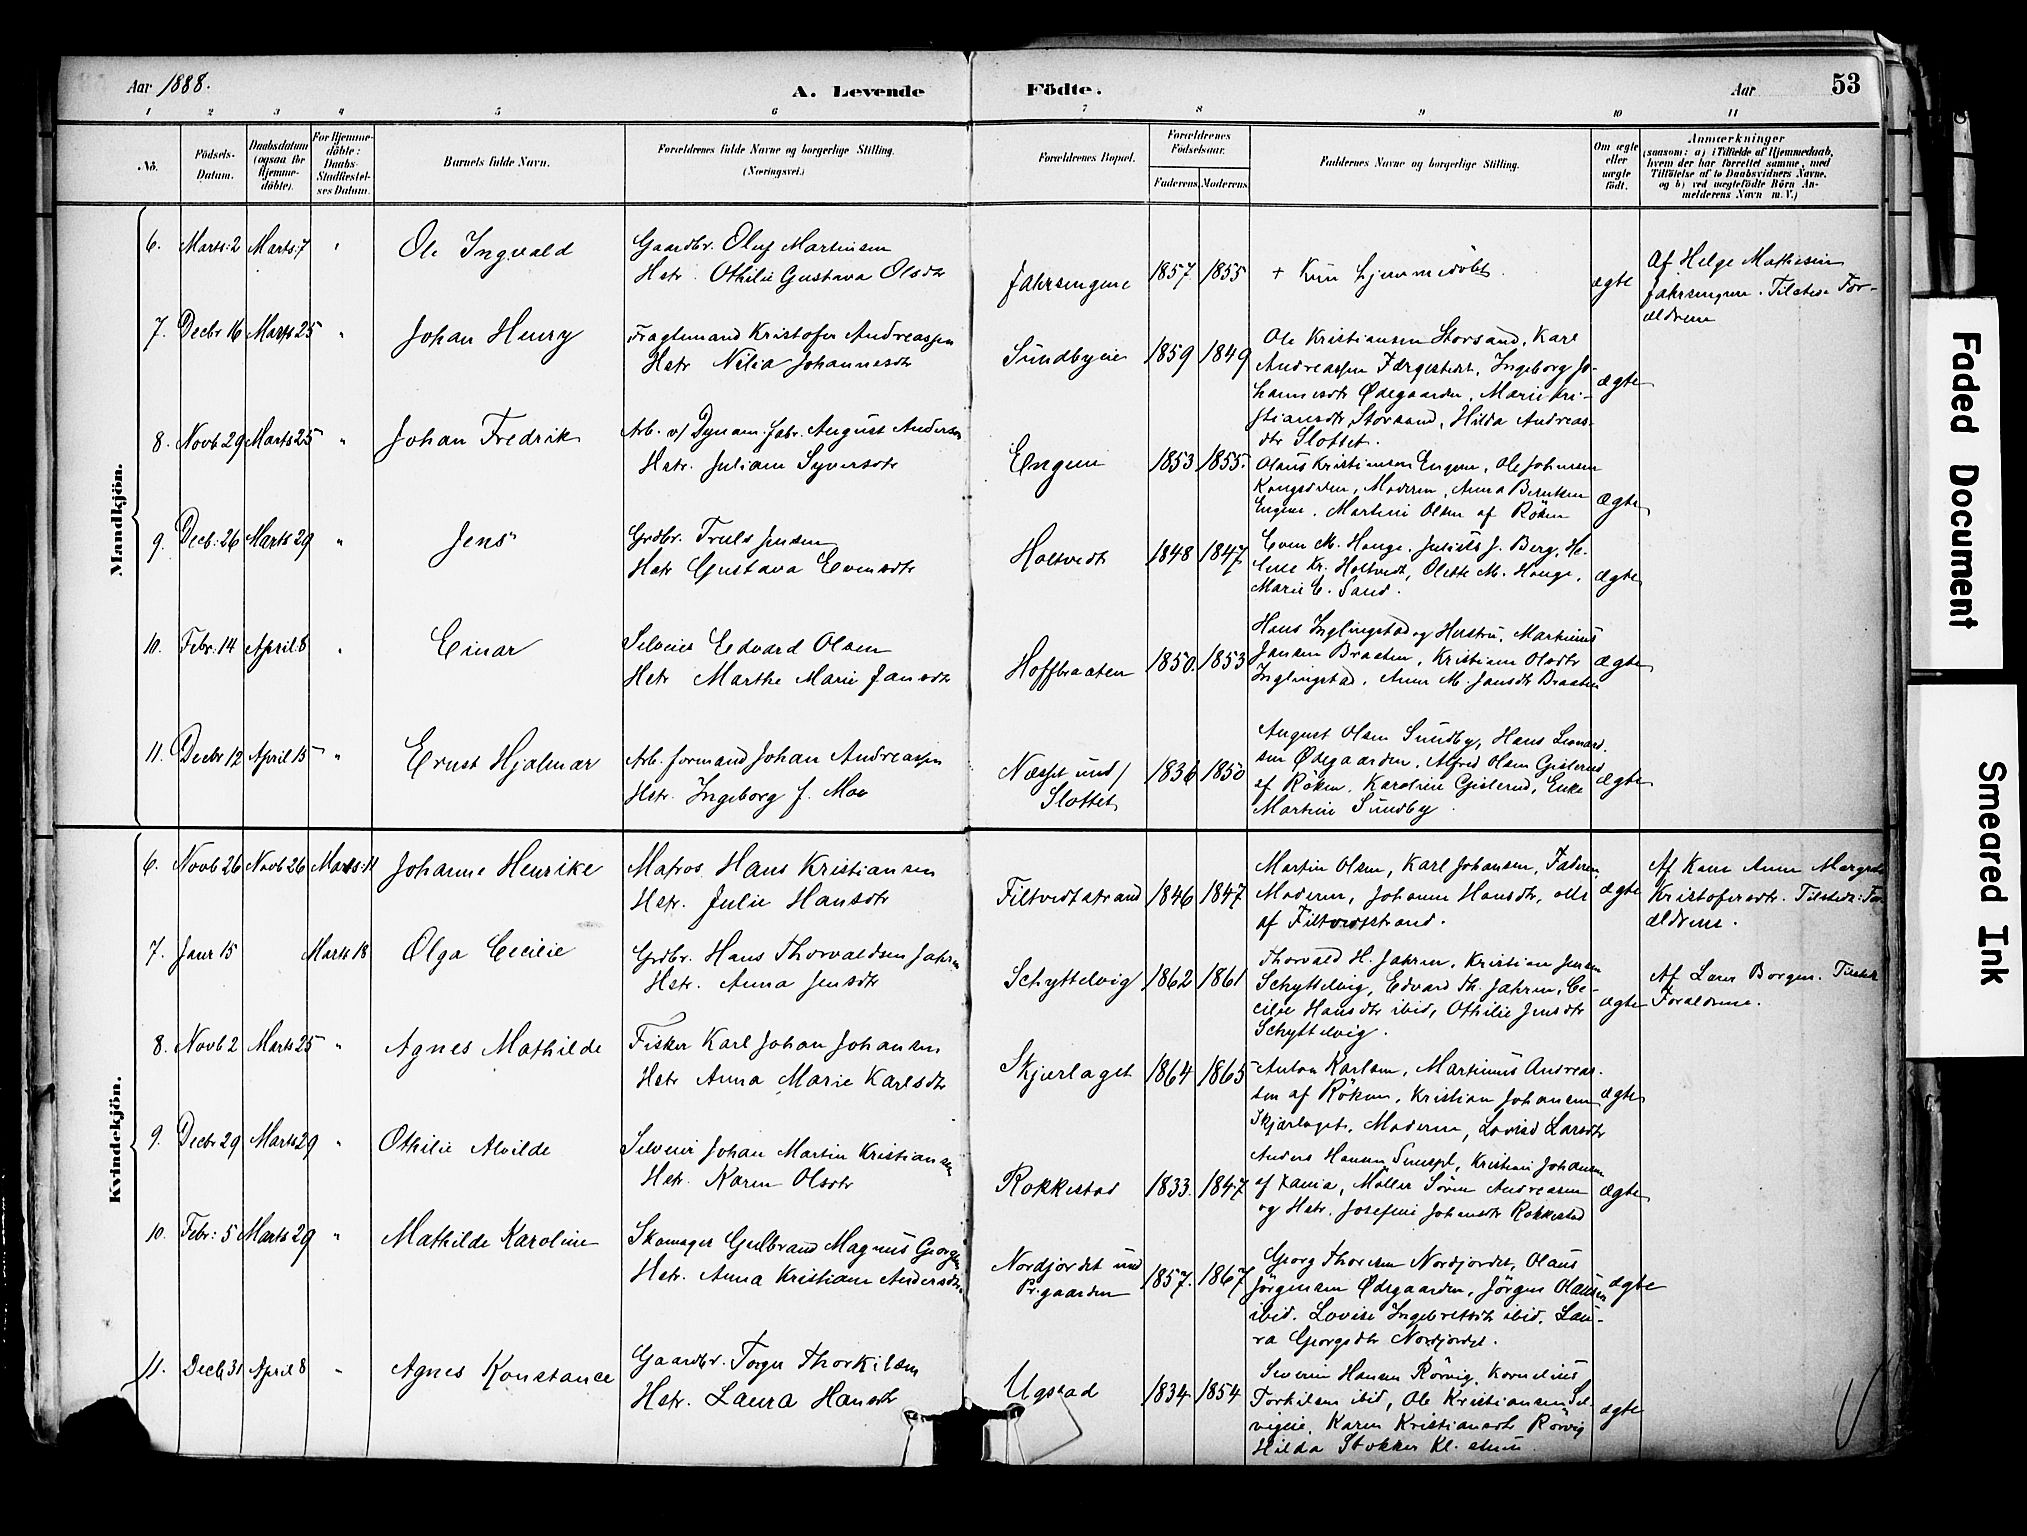 Aar 1888.
A. Levende Födte.
Aar
53
1 2 3 4 5 6 7 8 9 10 11
No.
Födsels-Datum.
Daabsdatum (ogsaa for Hjemme-döbte).
For Hjemme-döbte: Daabs-Stadfæstel-ses Datum.
Barnets fulde Navn.
Forældrenes fulde Navne og borgerlige Stilling. (Næringsvei.)
Forældrenes Bopæl.
Forældrenes Födselsaar.
Faderens Moderens
Faddernes Navne og borgerlige Stilling.
Om ægte eller uægte födt.
Anmærkninger
(saasom: a) i Tilfælde af Hjemmedaab, hvem der har forrettet samme, med Tilföielse af to Daabsvidners Navne, og b) ved uægtefödte Börn An-melderens Navn m. V.)
Mandkjön.
6. Marts 2 Marts 7 " Ole Ingvald
Gaardbr. Oluf Martinsen
Hstr. Othilie Gustava Olsdtr
Jahrsengene 1857 1855 + Kun hjemmedöbt. ægte
Af Helge Mathesen
Jahrsengene. Tilstede For-
ældrene
7. Decbr 16 Marts 25 " Johan Henry
Fragtemand Kristofer Andreassen
Hstr Nilia Johannesdtr
Sundbyeie 1859 1849
Ole Kristiansen Storsand, Karl
Andreassen Færgestedet, Ingeborg Jo-
hannesdtr Ødegaarden, Marie Kri-
stiansdtr Storsand, Hilda Andreas-
dtr Slottet.
ægte
8. Novb 29 Marts 25 " Johan Fredrik
Arb. v/ Dynam. fabr. August Andersen
Hstr. Juliane Syversdtr
Engene 1853 1855.
Olaus Kristiansen Engene, Ole Johansen
Kongsdelen, Moderen, Anna Berntsen
Engene, Martine Olsen af Röken
ægte
9. Decb. 26 Marts 29 " Jens
Grdbr. Truls Jensen
Hstr Gustava Evensdtr
Holtvedt 1848 1847
Even M. Hauge, Julius J. Berg, He-
lene Kr. Holtvedt, Olette M. Hauge,
Marie E. Sand.
ægte
10. Febr. 14 April 8 " Einar
Selveier Edvard Olsen
Hstr Marthe Marie Jansdtr
Hoffbraaten 1850. 1853
Hans Inglingstad og Hustru, Martinus
Jansen Braaten, Kristiane Olsdtr
Inglingstad, Anne M. Jansdtr Braaten
ægte
11. Decbr 12 April 15 " Ernst Hjalmar
Arb. formand Johan Andreassen
Hstr. Ingeborg J. Moe
Næsset und/
Slottet 1836 1850
August Olsen Sundby, Hans Leonard-
sen Ødegaarden, Alfred Olsen Gislerud
af Röken, Karoline Gislerud, Enke
Martine Sundby
ægte
Kvindekjön.
6. Novb 26 Novb 26 Marts 11 Johanne Henrike
Matros Hans Kristiansen
Hstr. Julie Hansdtr
Filtvedtstrand 1846 1847
Martin Olsen, Karl Johansen, Faderen,
Moderen, Johanne Hansdtr, alle
af Filtvedtstrand.
ægte
Af Kone Anne Margrete
Kristofersdtr. Tilstede: For-
ældrene.
7. Janr 15 Marts 18 Olga Cecilie
Grdbr. Hans Thorvaldsen Jahren
Hstr. Anna Jensdtr
Schyttelvig 1862 1861
Thorvald H. Jahren, Kristian Jensen
Schyttelvig, Edvard Th. Jahren, Ce-
cilie Hansdtr ibid, Othilie Jensdtr
Schyttelvig.
ægte
Af Borgen. Tilstede
Forældrene.
8. Novb 2 Marts 25 " Agnes Mathilde
Fisker Karl Johan Johansen
Hstr Anna Marie Karlsdtr
Skjærlaget 1864 1865
Anton Karlsen, Martinus Andreas-
sen af Röken, Kristian Johansen
Skjærlaget, Moderen, Lovise Larsdtr
ægte
9. Decbr 29 Marts 29 " Othilie Alvilde
Selveier Johan Martin Kristiansen
Hstr. Karen Olsdtr
Rokkestad 1833. 1847
Anders Hansen, Kristian Johansen
af Xania, Möller Sören Andreasen
og Hstr. Josefine Johansdtr Rokkestad
ægte
10. Febr: 5 Marts 29 " Mathilde Karoline
Skomager Gulbrand Magnus Georgsen
Hstr. Anna Kristiane Andersdtr
Nordjordet und
Pr.gaarden 1857. 1867
Georg Thoresen Nordjordet, Olaus
Jörgensen Ødegaarden, Jörgen Olausen
ibid. Lovise Ingebretsdtr ibid, Lau-
ra Georgsdtr Nordjordet.
ægte
11. Decb. 31 April 8 " Agnes Konstance
Gaardbr. Torger Thorkilsen
Hstr. Laura Hansdtr
Ugstad 1834 1854
Severin Hansen Rörvig, Kornelius
Torkilsen ibid, Ole Kristiansen Sel-
vigeie, Karen Kristiansdtr Rörvig
Hilda Stokker
ægte
Faded Document
Smeared Ink